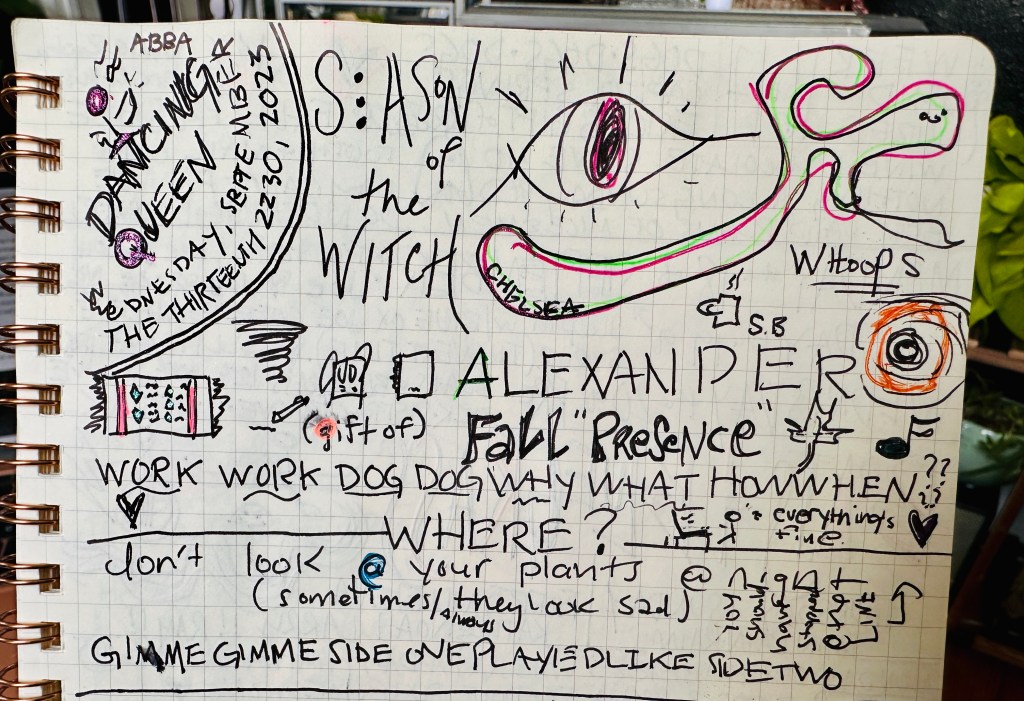 ABBA
DANCING
QUEEN
WEDNESDAY, SEPTEMBER
THE THIRTEENTH 22:30, 2023
S:ASON
of
the
WITCH
CHELSEA
WHOOPS
S.B
ALEXANDER
(Gift of) FALL "PRESENCE"
WORK WORK DOG DOG WHY WHAT HOW WHEN??
WHERE?
everything's
fine.
don't look @ your plants @ night
(sometimes/they look sad)
Always
GIMME GIMME SIDE ONE PLAYED LIKE SIDE TWO